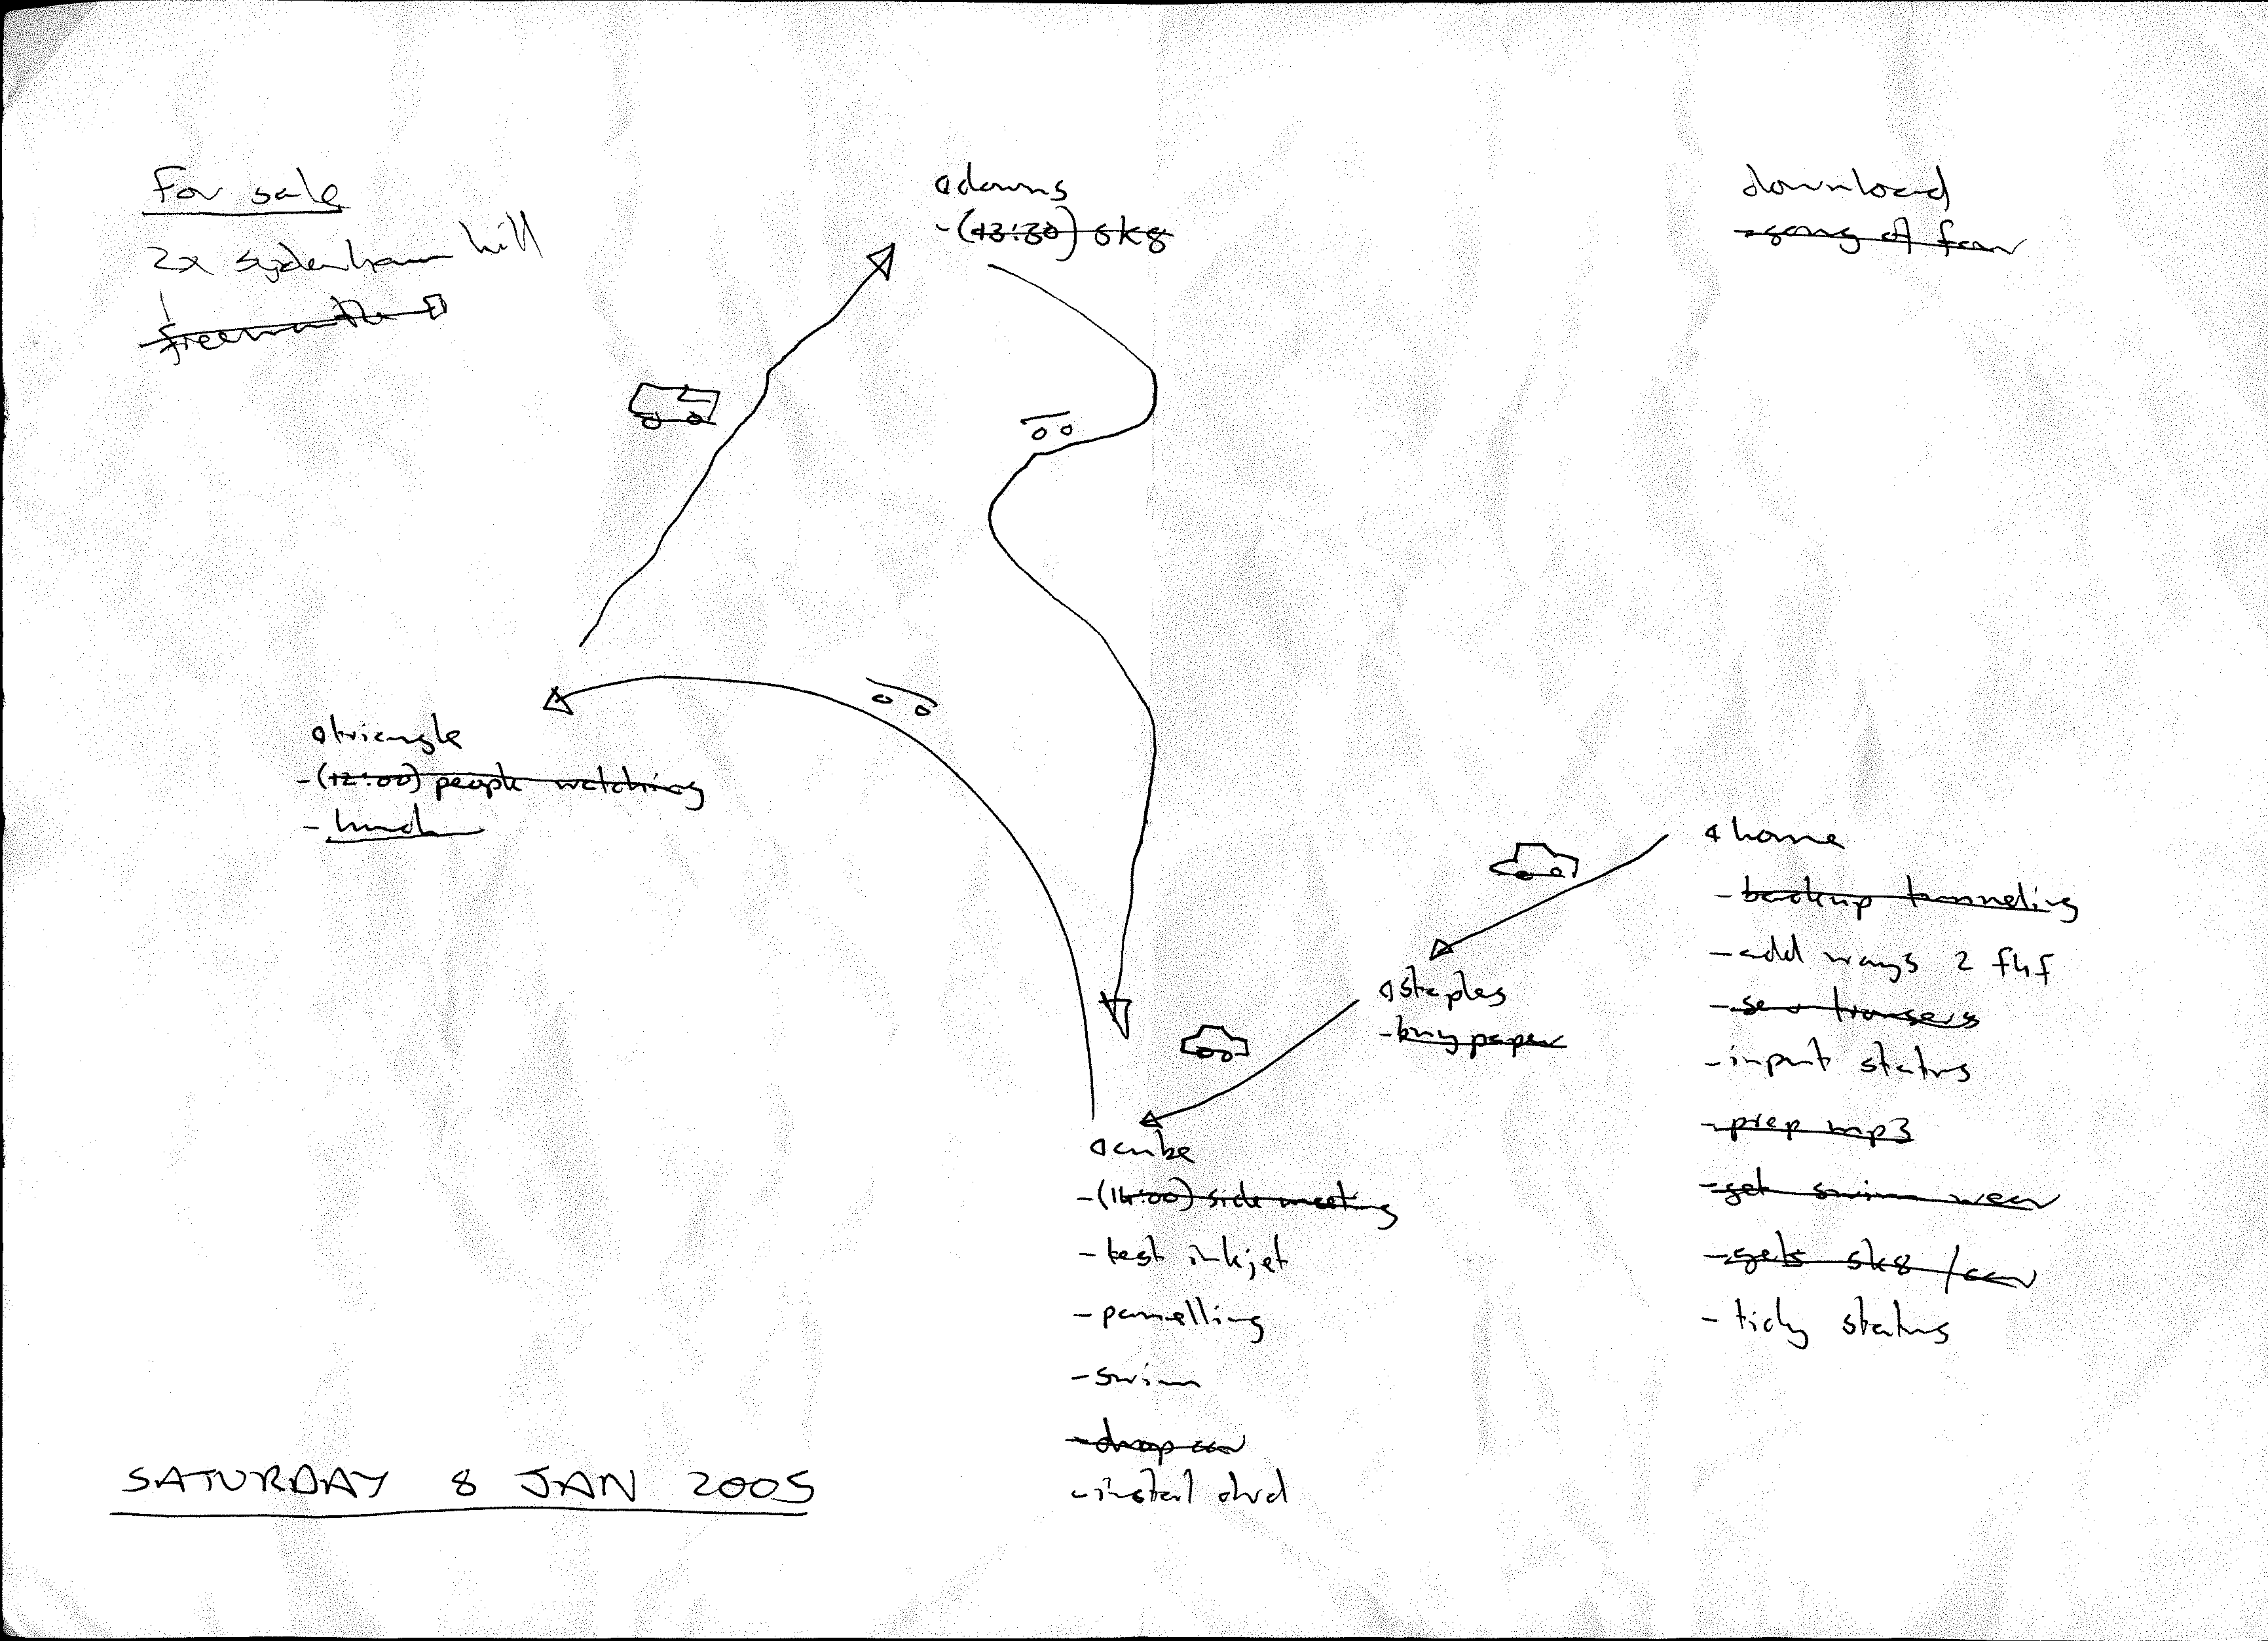 For sale
2x sydenham hill
downs
-(13:30) sk8
download
-song of fear
triangle
-(12:00) people watching
- lunch
home
- backup tunneling
- add ways 2 f4f
- sew trousers
- input status
- prep mp3
- get swim wear
- gets sk8 / car
- tidy status
staples
- buy paper
cube
-(14:00) side meeting
- test inkjet
- pannelling
- swim
- drop car
- instal dvd
SATURDAY 8 JAN 2005